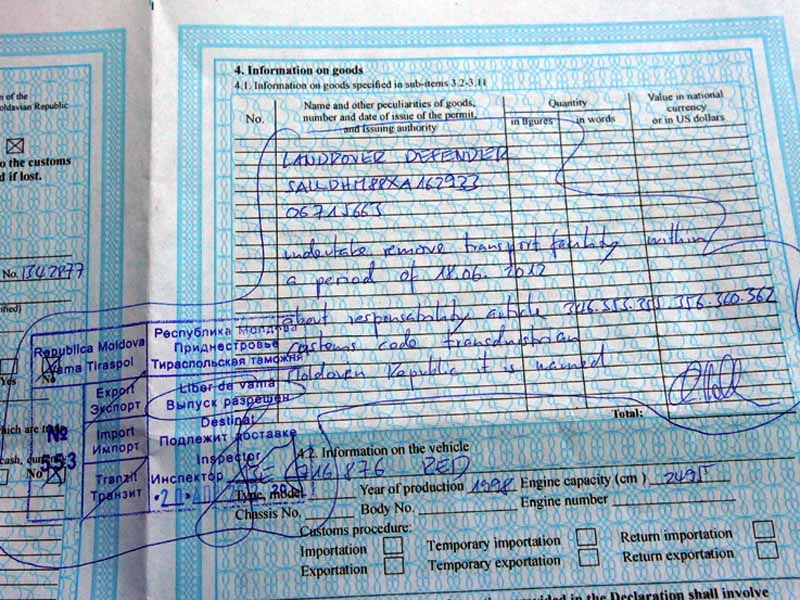 n of the
oldavian Republic
o the customs
d if lost.
No. 1342877
ified)
Yes
No
which are
cash,
No
4. Information on goods
4.1. Information on goods specified in sub-items 3.2-3.11
No.
Name and other peculiarities of goods, number and date of issue of the permit, and Issuing authority
Quantity
in figures
in words
Value in national currency or in US dollars
LANDROVER DEFENDER
SALLDHM88XA162933
06715663
undertake remove transport facility within
a period of 18.06.2012
about responsability article 346.355.355.356.360.362
customs code transdnistrian
Moldoven Republic it is named
Total:
Republica Moldova
Vama Tiraspol
Республика Молдова
Приднестровье
Тираспольская таможня
Export
Экспорт
Liber de vamă
Выпуск разрешен
№
553
Import
Импорт
Destinat
Подлежит доставке
Tranzit
Транзит
Inspector
Инспектор
4.2. Information on the vehicle
716876 RED
Type, model
Year of production 1998 Engine capacity (cm ) 2495
Chassis No.
Body No.
Engine number
Customs procedure:
Importation
Temporary importation
Return importation
Exportation
Temporary exportation
Return exportation
provided in the Declaration shall involve